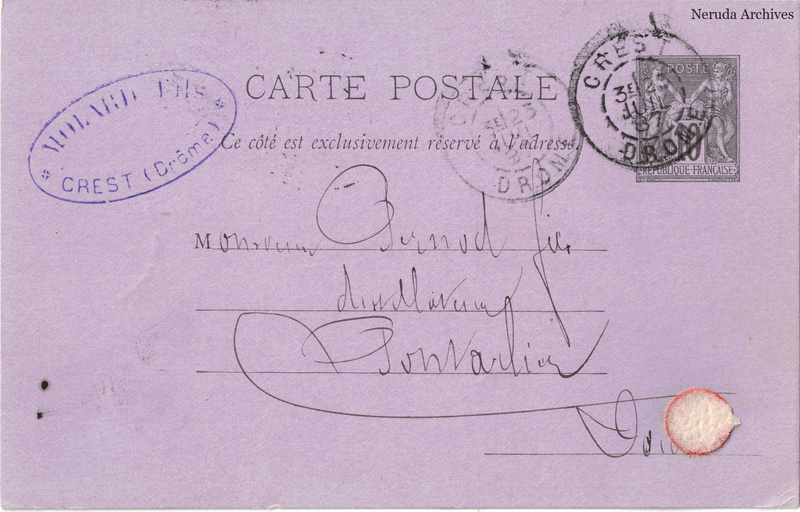 Neruda Archives
MOLARD FILS
CREST (Drôme)
CARTE POSTALE
Ce côté est exclusivement réservé à l'adresse.
CREST
3E 23
JUIL
DRÔME
CREST
3E 23
JUIL
DRÔME
POSTE
10
RÉPUBLIQUE FRANÇAISE
Monsieur Pernod fils
distillateur
Pontarlier